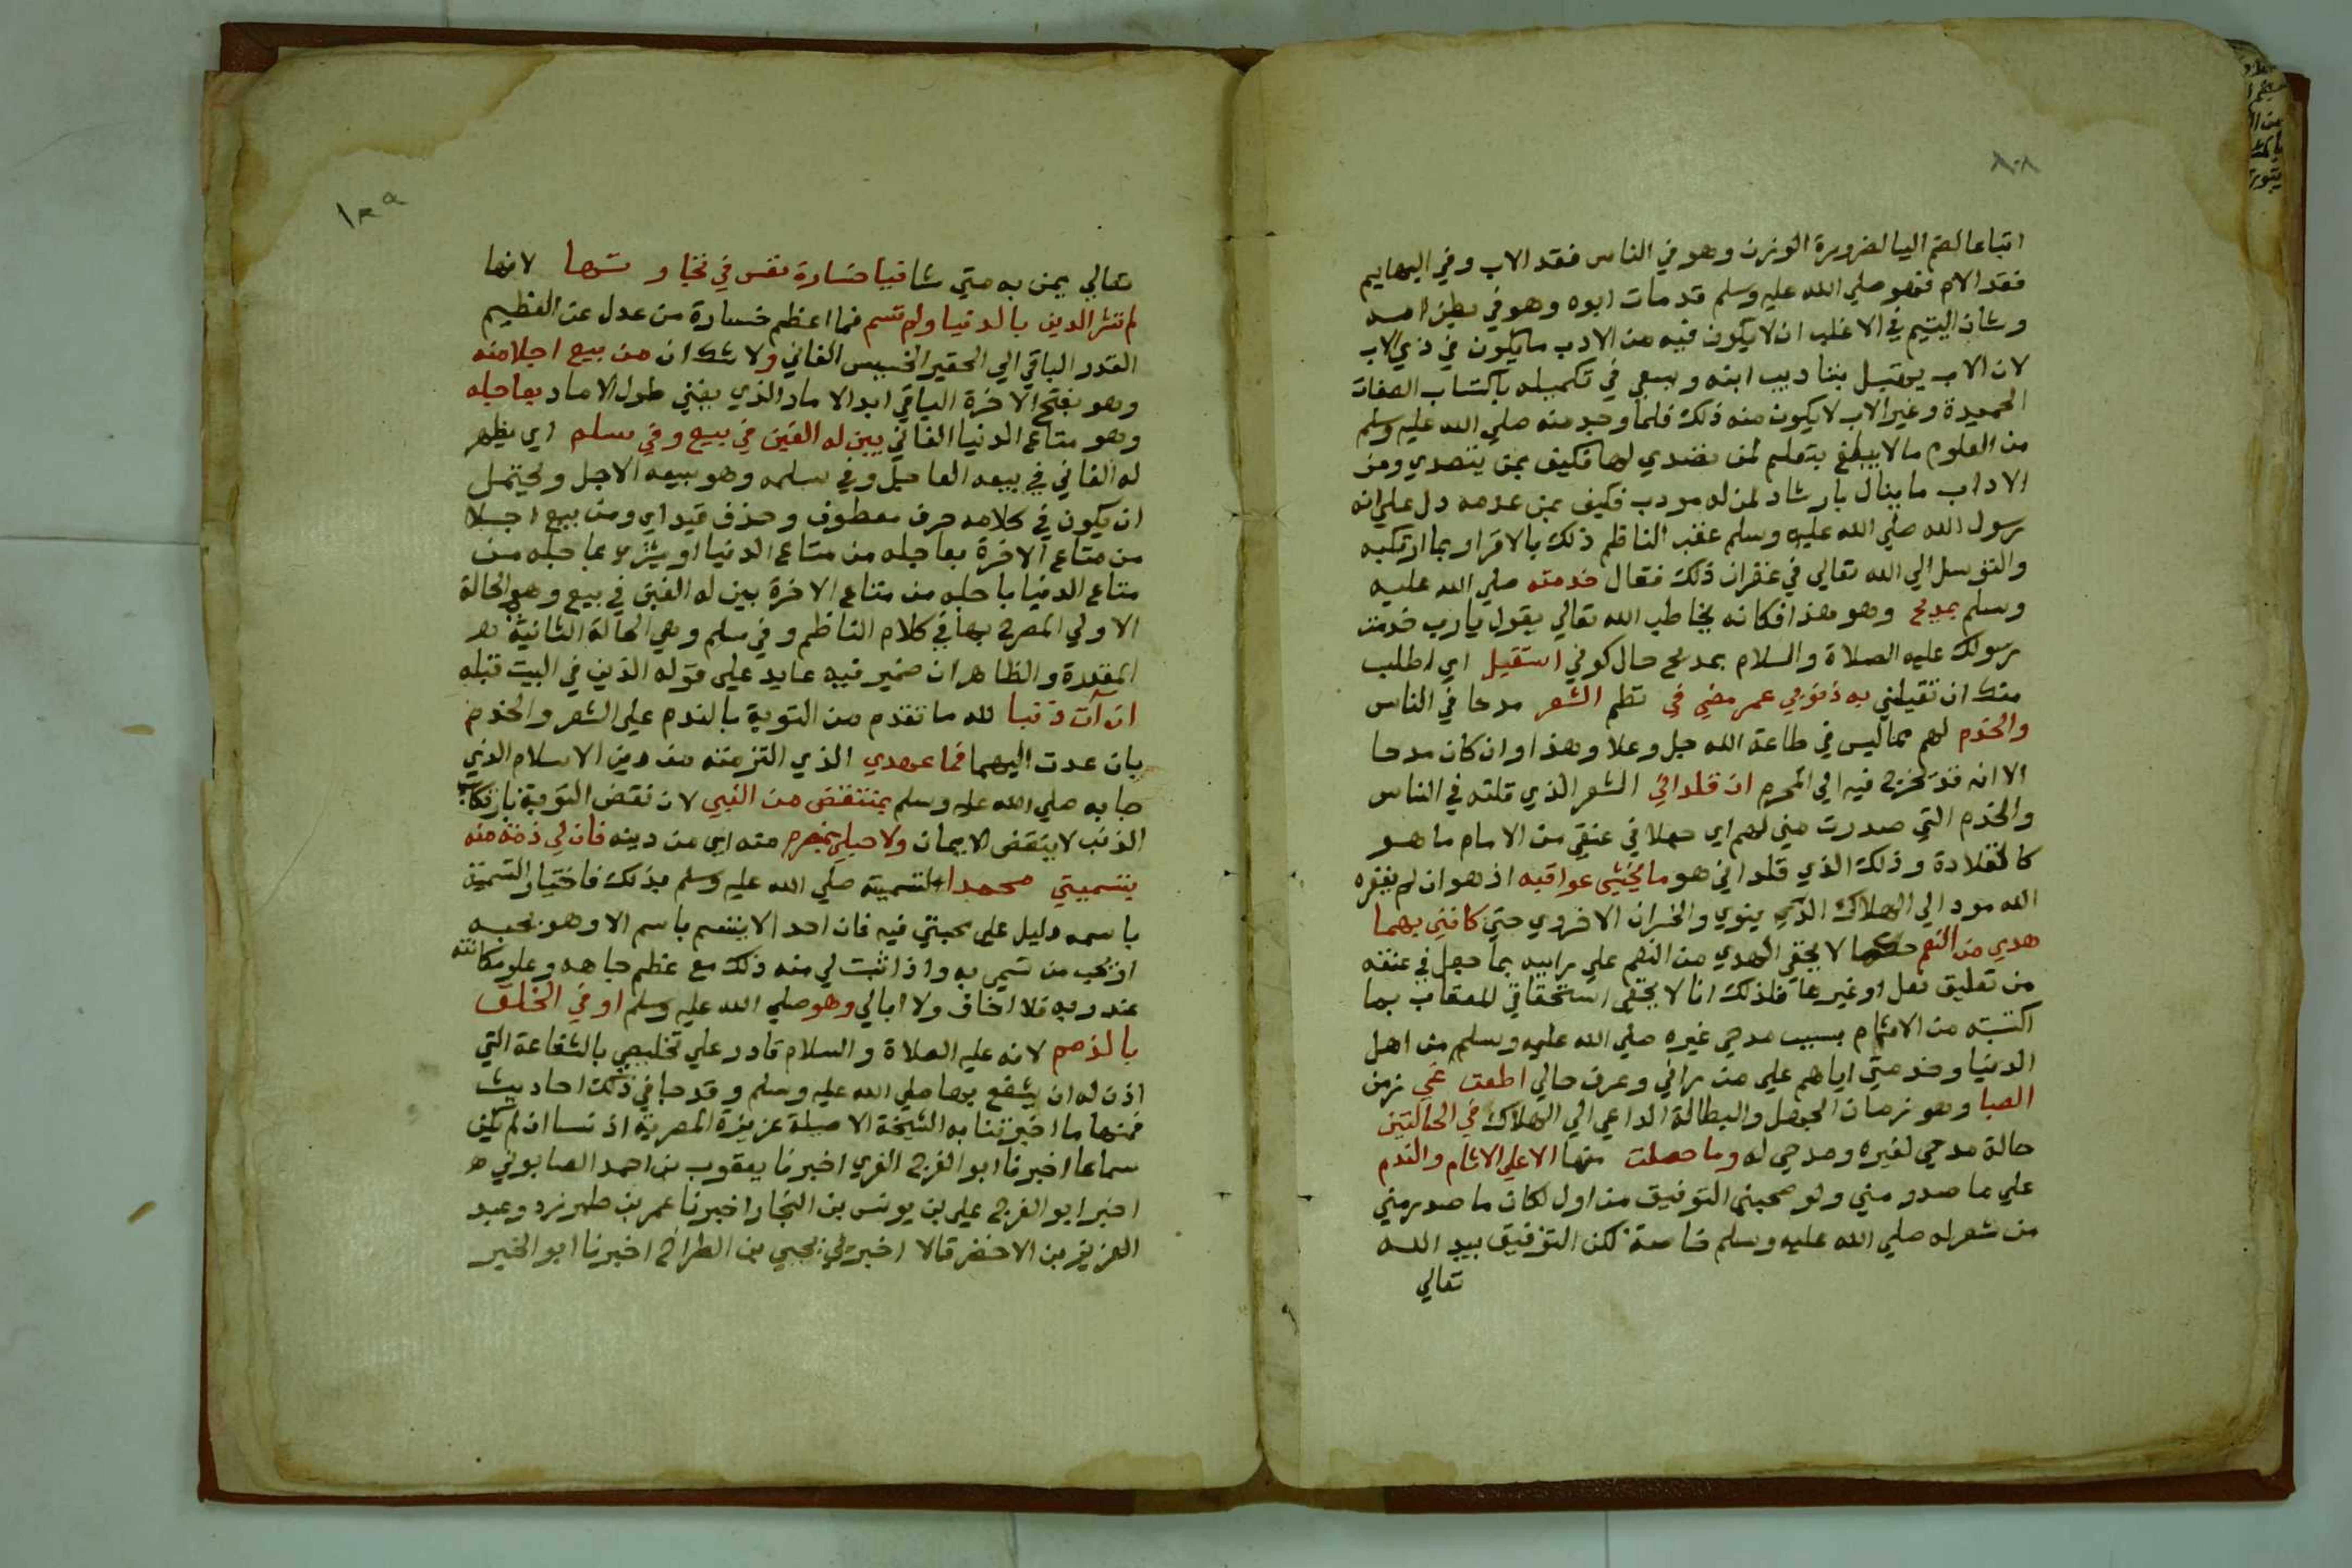 ١٠٨
اتباعا لضم اليا لضرورة الوزن وهو في الناس فقد الاب وفي البهايم
فقد الام فهو صلي الله عليه وسلم قد مات ابوه وهو في بطن امه
وشان اليتيم في الاغلب ان لا يكون فيه من الادب ما يكون في ذي الاب
لان الاب يقبل بتاديب ابنه ويسعي في تكميله باكتساب الصفات
الحميدة وغير الاب لا يكون منه ذلك فلما وجد منه صلي الله عليه وسلم
من العلوم ما لا يبلغ بتعلم لمن تصدي لها فكيف بمن يتصدي ومن
الاداب ما ينال بارشاد لمن له مودب فكيف بمن عدمه دل علي انه
رسول الله صلي الله عليه وسلم عقب الناظم ذلك بالاقرار بما ارتكبه
والتوسل الي الله تعالي في غفران ذلك فقال خدمته صلي الله عليه
وسلم بمديح وهو هذا فكانه يخاطب الله تعالي يقول يارب خدمت
رسولك عليه الصلاة والسلام بمديح حال كوني استقيل اي اطلب
منك ان تقيلني به ذنوب عمر مضي في نظم الشعر مدحا في الناس
والخدم لهم مما ليس في طاعة الله جل وعلا وهذا وان كان مدحا
الا انه قد يخرج فيه الي المحرم اذ قلداني الشعر الذي قلته في الناس
والخدم التي صدرت مني لهم اي جعلا في عنقي من الاثام ما هو
كالقلادة وذلك الذي قلداني هو ما يخشي عواقبه اذ هو ان لم يغفره
الله مود الي الهلاك الدنيوي والخسران الاخروي حتي كانني بهما
هدي من النعم حكما لا يخفي الهدي من النعم علي راييه بما جعل في عنقه
من تعليق نعل او غيرها فلذلك انا لا يخفي استحقاقي للعقاب بما
اكتسبته من الاثام بسبب مدحي غيره صلي الله عليه وسلم من اهل
الدنيا وخدمتي اياهم علي من راني وعرف حالي اطعت غي زمن
الصبا وهو زمان الجهل والبطالة الداعي الي الهلاك في الحالتين
حالة مدحي لغيره ومدحي له وما حصلت منها الا علي الاثام والندم
علي ما صدر مني ولو صحبني التوفيق من اول لكان ما صدر مني
من شعر له صلي الله عليه وسلم خاصة لكن التوفيق بيد الله
تعالي
١٠٩
تعالي يمن به متي شا فيا خسارة نفس في تجارتها لانها
لم تشتر الدين بالدنيا ولم تسم فما اعظم خسارة من عدل عن العظيم
القدر الباقي الي الحقير الخسيس الفاني ولا شك ان من يبع اجلا منه
وهو نفع الاخرة الباقي ابد الاماد الذي يفني طول الاماد بعاجله
وهو متاع الدنيا الفاني يبن له الغبن في بيع وفي سلم اي يظهر
له الغاني في بيعه العاجل وفي سلمه وهو بيعه الاجل ويحتمل
ان يكون في كلامه حرف معطوف وحذف قيد اي ومن يبع اجلا
من متاع الاخرة بعاجله من متاع الدنيا او يشتر عاجله من
متاع الدنيا باجله من متاع الاخرة يبن له الغبن في بيع وهو الحالة
الاولي المصرح بها في كلام الناظم وفي سلم وهي الحالة الثانية
المقدرة والظاهر ان ضمير فيه عايد علي قوله الذين في البيت قبله
ان آت ذنبا لله ما تقدم من التوبة بالندم علي الشعر والخدم
بان عدت اليهما فما عهدي الذي التزمته من دين الاسلام الذي
جا به صلي الله عليه وسلم بمنتقض من النبي لان نقض التوبة بارتكاب
الذنب لا ينقض الايمان ولا حبلي بمنصرم منه اي من دينه فان لي ذمة منه
بتسميتي محمدا لتسميته صلي الله عليه وسلم بذلك فاختيار التسمية
باسمه دليل علي محبتي فيه فان احدا لا يتسم باسم الا وهو يحبه
او يحب من تسمي به واذا ثبت لي منه ذلك مع عظم جاهه وعلو مكانته
عند ربه فلا اخاف ولا ابالي وهو صلي الله عليه وسلم اوفي الخلق
بالذمم لانه عليه الصلاة والسلام قادر علي تخليصي بالشفاعة التي
اذن له ان يشفع بها صلي الله عليه وسلم وقد جا في ذلك احاديث
فمنها ما اخبرتنا به الشيخة الاصيلة عزيزة المصرية اذنا ان لم يكن
سماعا اخبرنا ابو الفرج الغزي اخبرنا يعقوب بن احمد الصابوني
اخبر ابو الفرج علي بن يونس بن النجار اخبرنا عمر بن طبرزد وعبد
العزيز بن الاخضر قالا اخبرنا يحيي بن الطراح اخبرنا ابو الخير